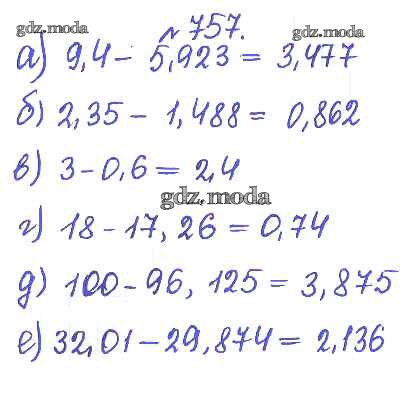 gdz.moda
№ 757.
gdz.moda
а) 9,4 - 5,923 = 3,477
б) 2,35 - 1,488 = 0,862
в) 3 - 0,6 = 2,4
gdz.moda
г) 18 - 17,26 = 0,74
д) 100 - 96,125 = 3,875
е) 32,01 - 29,874 = 2,136